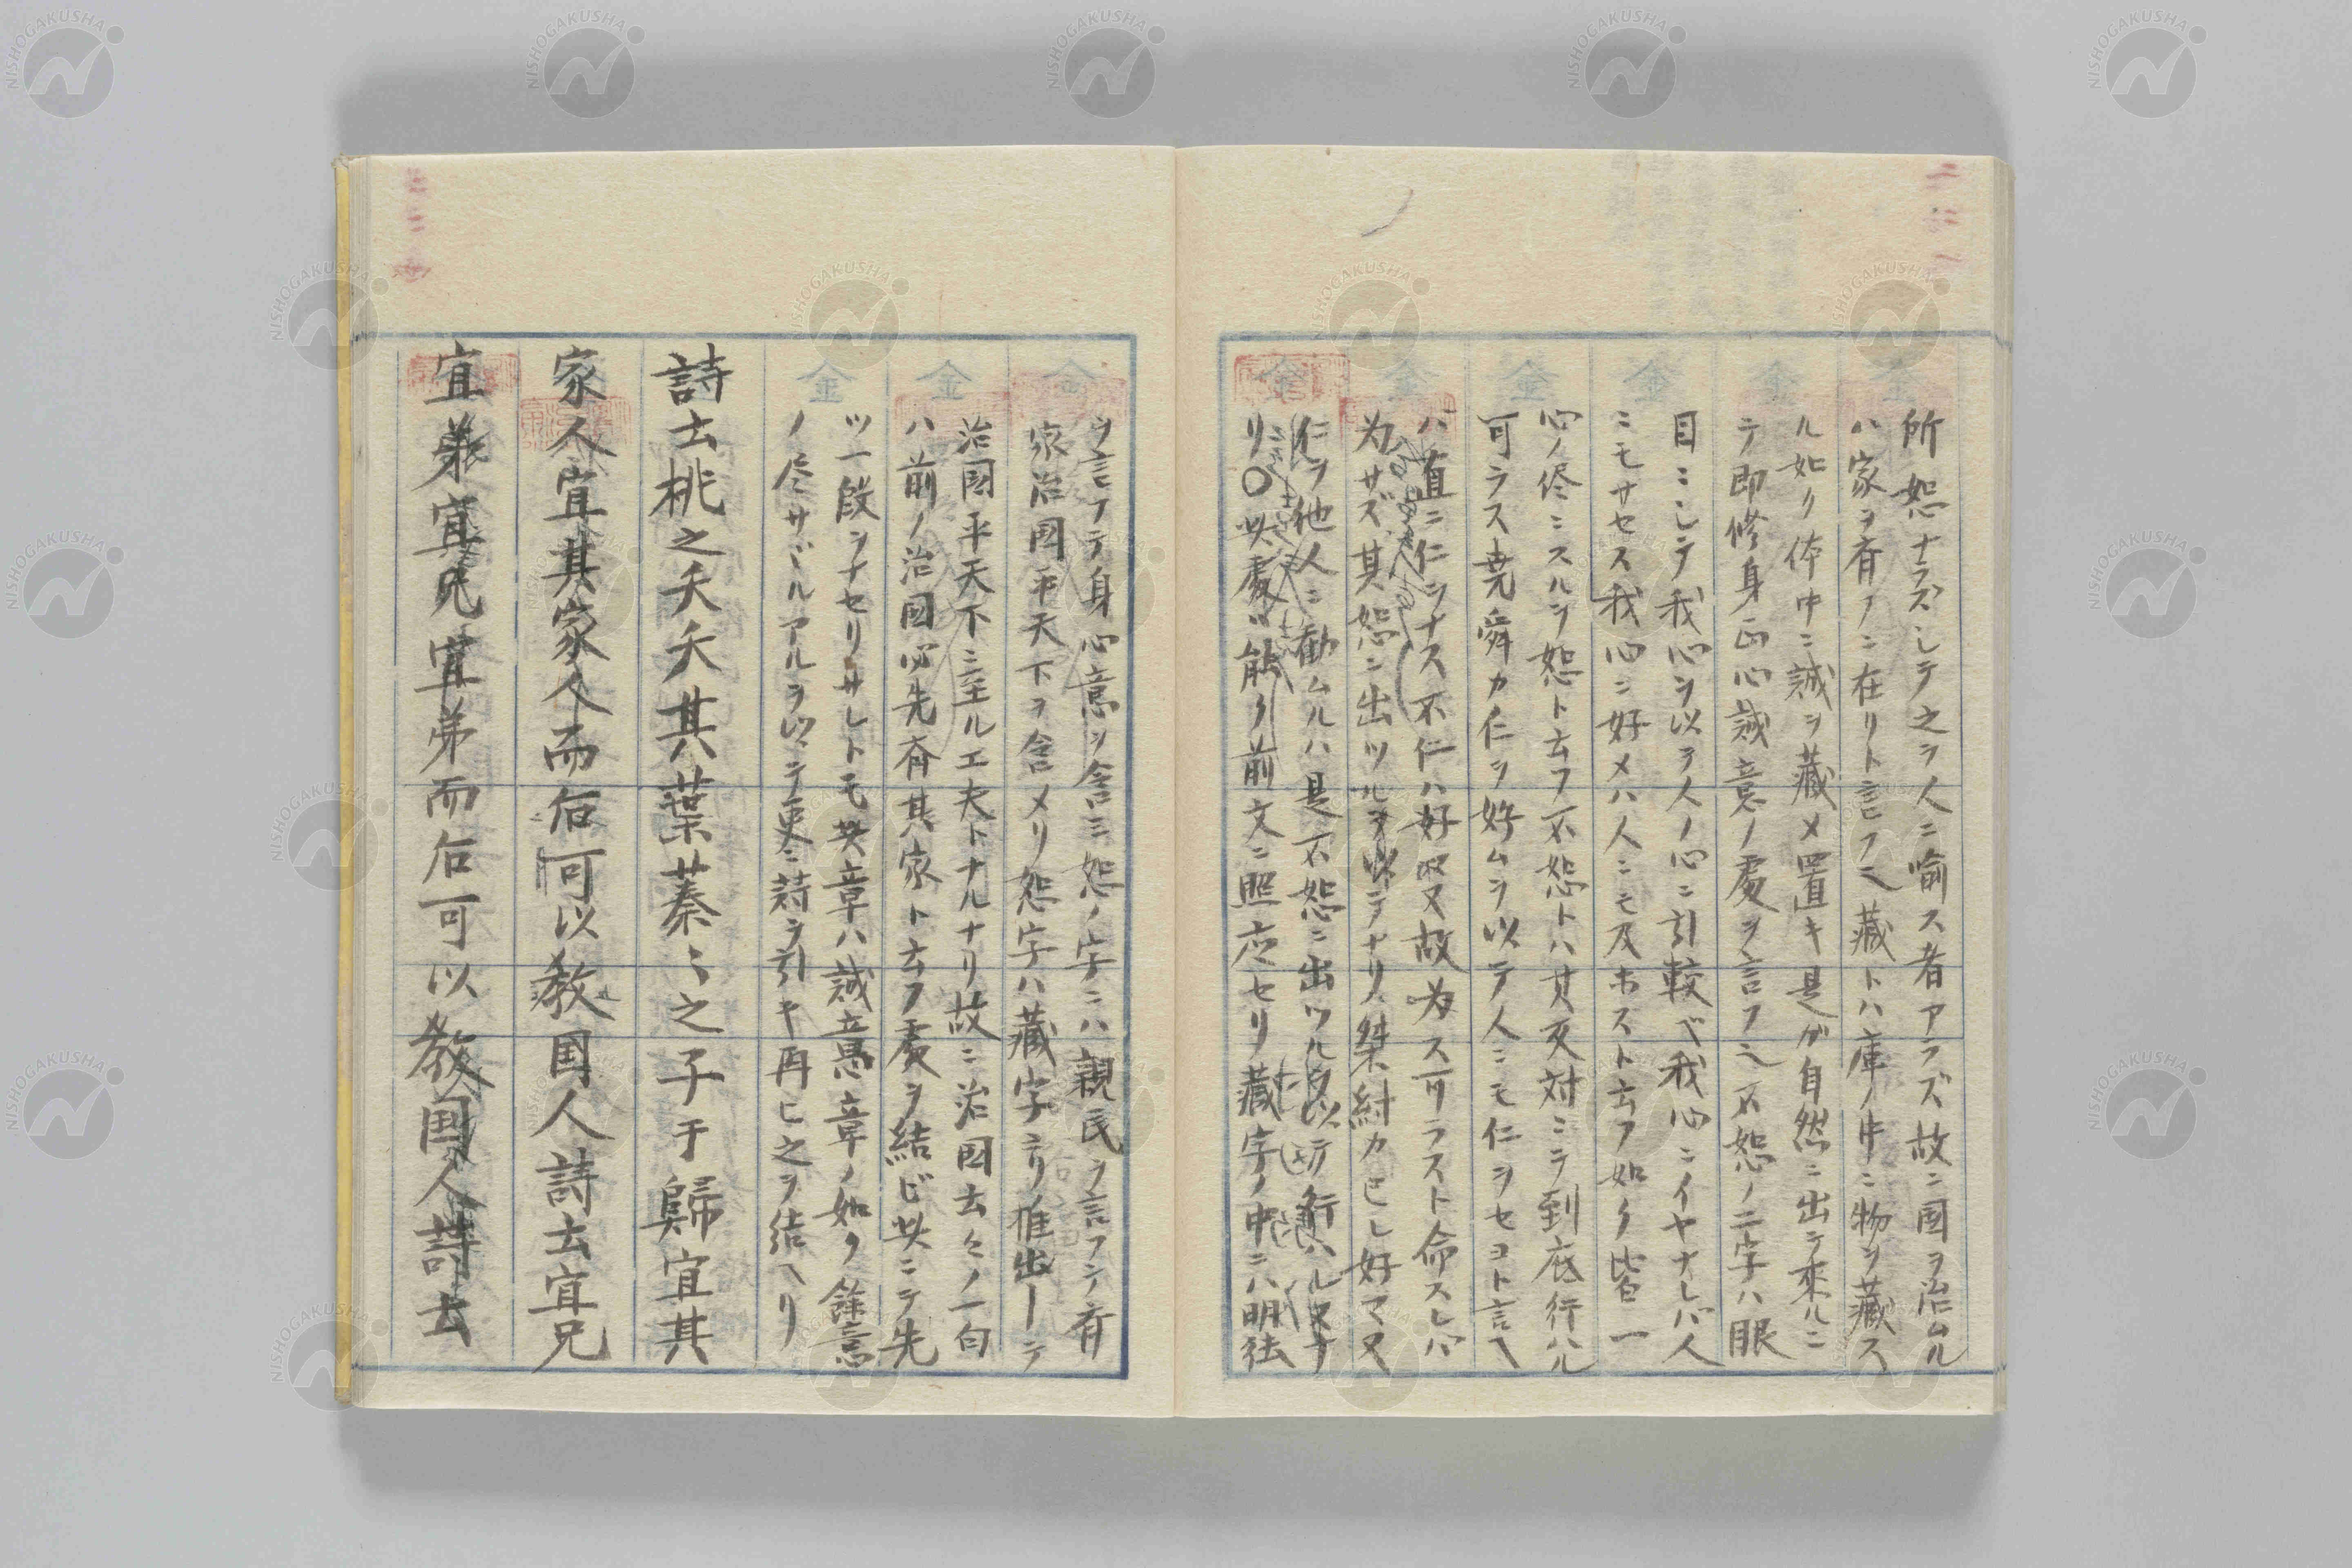 所恕ナラズシテ之ヲ人ニ喩ス者アラズ故ニ国ヲ治ムル
ハ家ヲ斉フニ在リト言フ也藏トハ庫ノ中ニ物ヲ藏ス
ル如ク体中ニ誠ヲ藏メ置キ是ガ自然ニ出テ来ルニ
テ即修身正心誠意ノ處ヲ言フ也不恕ノ二字ハ眼
目ニシテ我心ヲ以テ人ノ心ニ引較ベ我心ニイヤナレバ人
ニモサセス我心ニ好メハ人ニモ及ホスト云フ如ク皆一
心ノ侭ニスルヲ恕ト云フ不恕トハ其反対ニテ到底行ハル
可ラス堯舜カ仁ヲ好ムヲ以テ人ニモ仁ヲセヨト言ヘ
バ直ニ仁ヲナス不仁ハ好マヌ故為スリラスト命スレバ
為サズ其恕ニ出ツルヲ以テナリ桀紂カ己レ好マヌ
仁ヲ他人ニ勧ムルハ是不恕ニ出ツルヲ以テ行ハル
リ〇此處ハ能ク前文ニ照応セリ藏字ノ中ニハ明徳
ヲ言フテ身心意ヲ含ミ恕ノ字ニハ親民ヲ言フテ斉
家治国平天下ヲ含メリ恕字ハ藏字ヨリ推出シテ
治国平天下ニ至ル工夫トナルナリ故ニ治国云々ノ一句
ハ前ノ治国必先斉其家ト云フ處ヲ結ビ此ニテ先
ツ一段ヲナセリサレトモ此章ハ誠意章ノ如ク餘意
ノ尽サヾルアルヲ以テ更ニ詩ヲ引キ再ヒ之ヲ結ヘリ
詩云桃之夭夭其葉蓁〻之子于歸宜其
家人宜其家人而后可以敎国人詩云宜兄
宜弟宜兄宜弟而后可以敎国人詩云
NISHOGAKUSHA